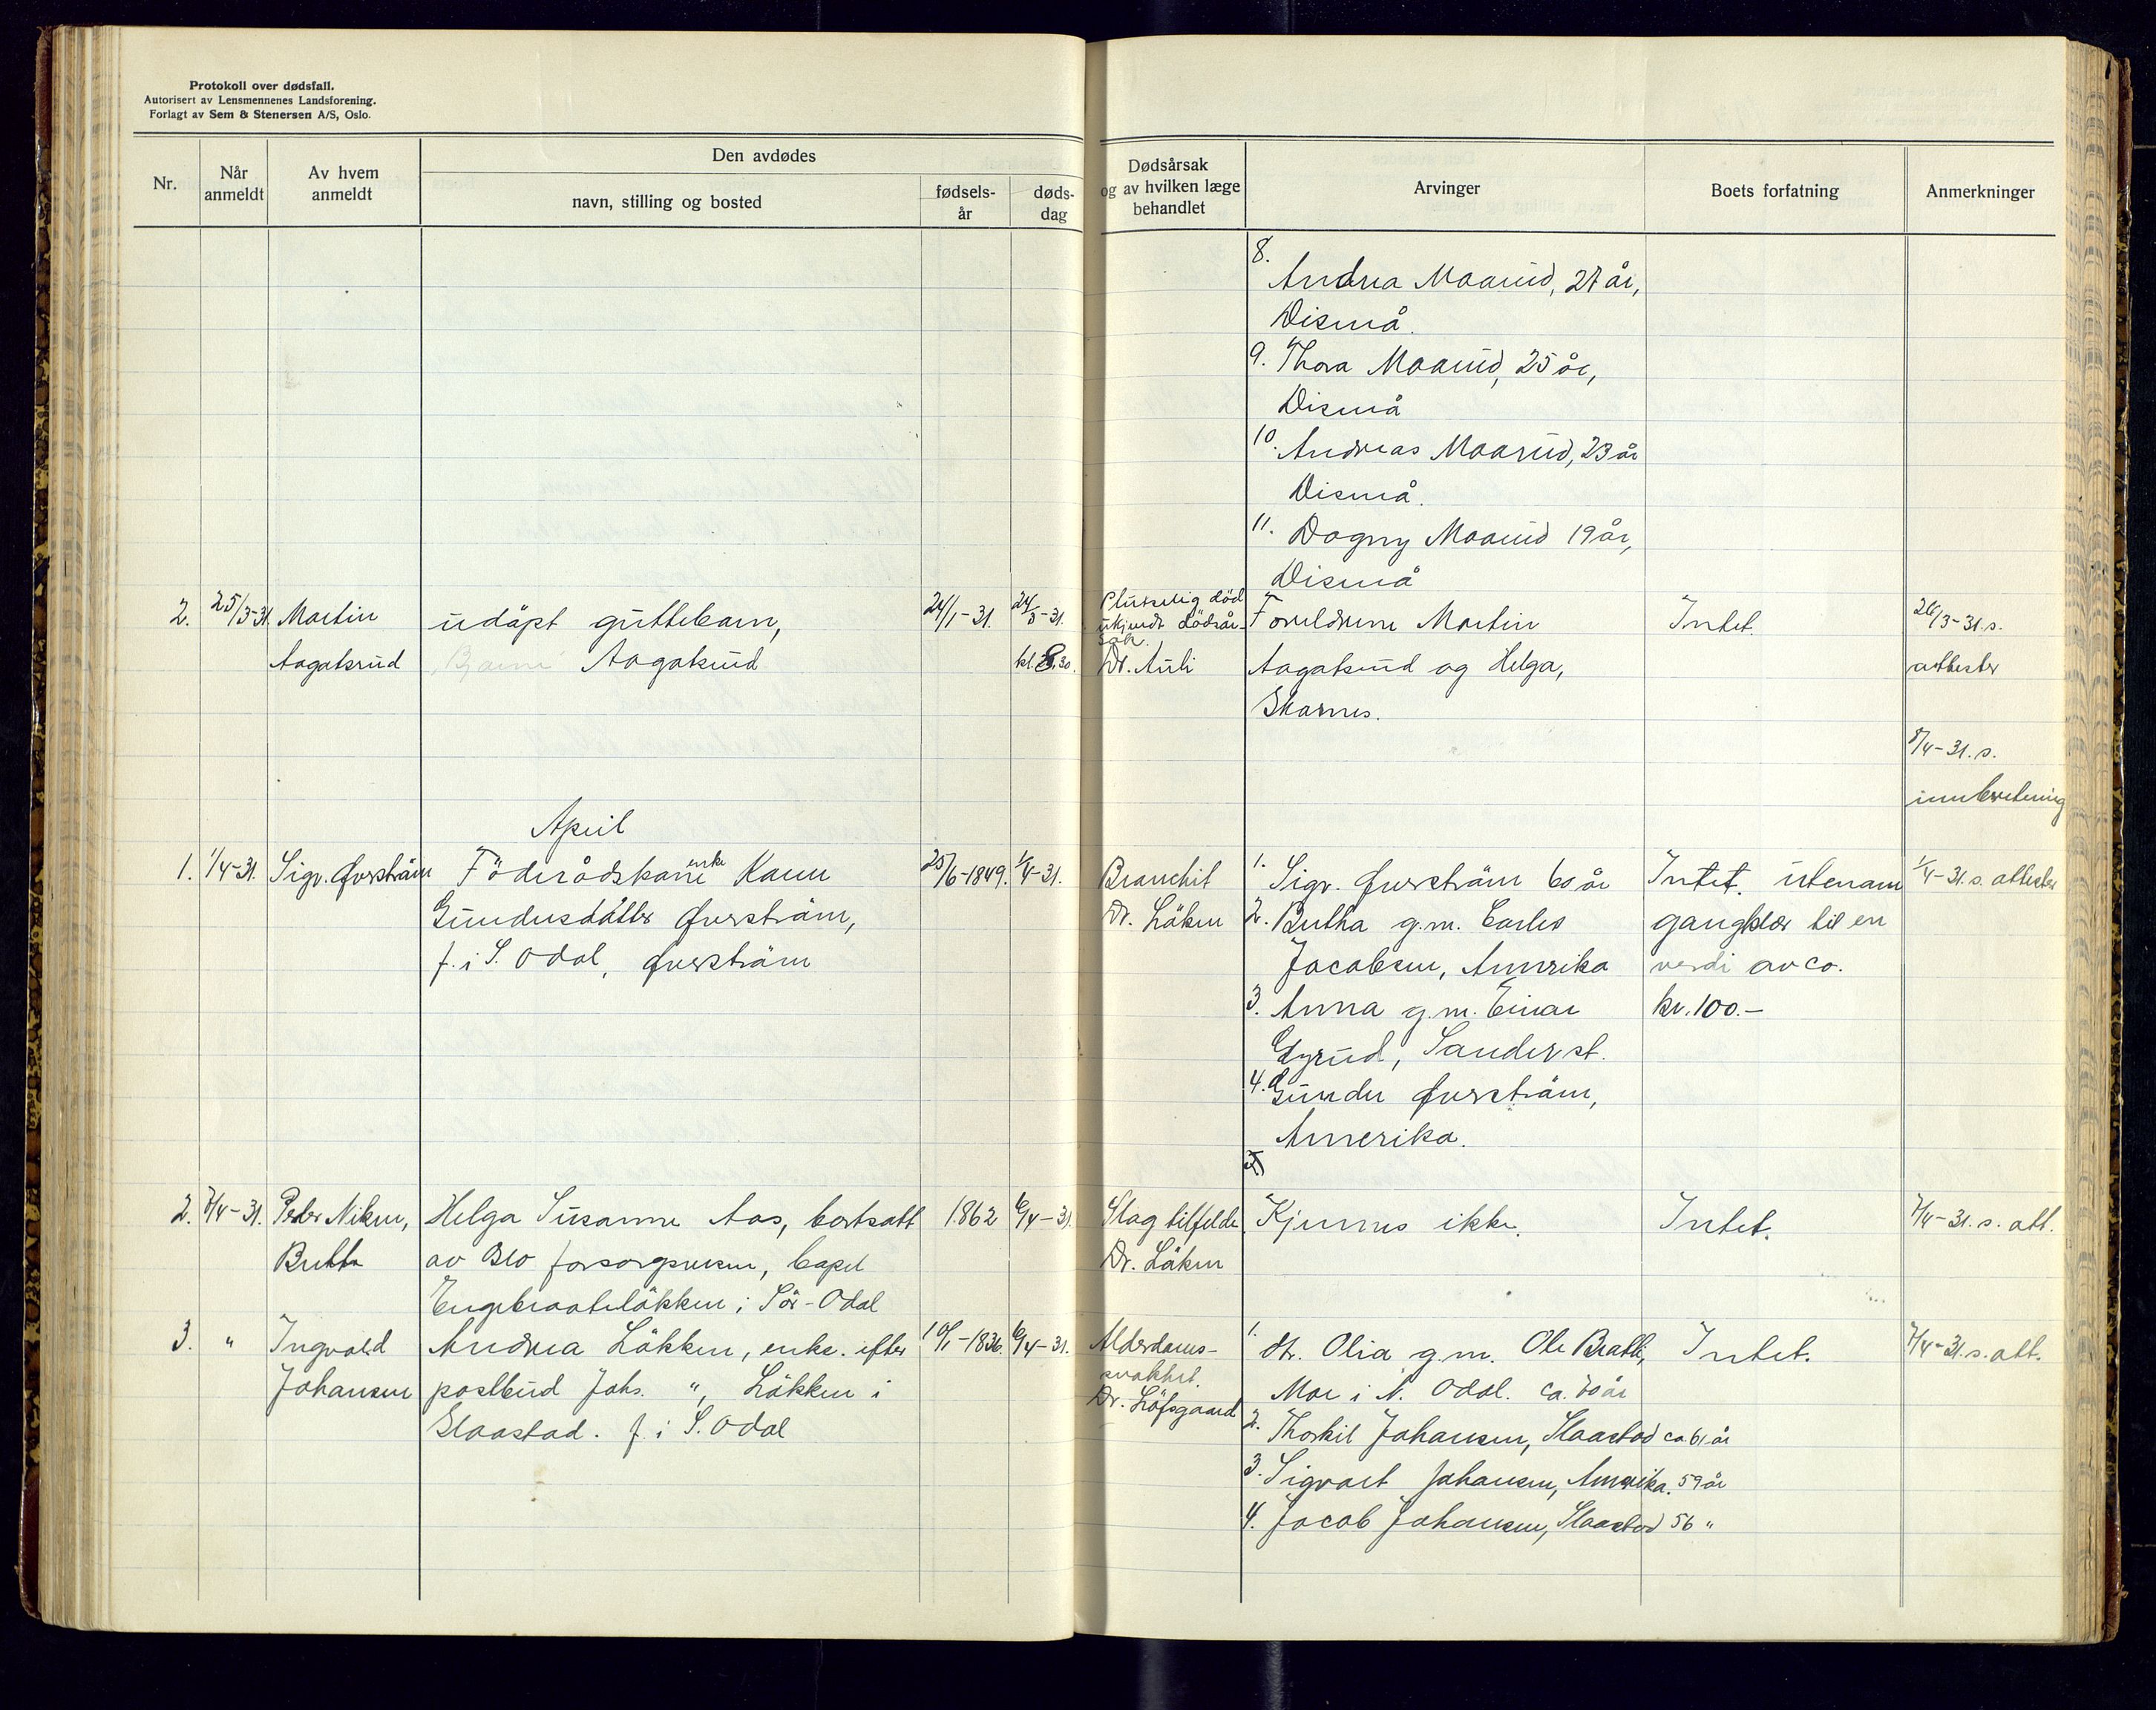 Protokoll over dødsfall.
Autorisert av Lensmennenes Landsforening.
Forlagt av Sem & Stenersen A/S, Oslo.
Nr.
Når anmeldt
Av hvem anmeldt
Den avdødes
navn, stilling og bosted
fødsels-
år
døds-
dag
Dødsårsak
og av hvilken læge
behandlet
Arvinger
Boets forfatning
Anmerkninger
8.
Andrea Maarud, 27 år,
Disenå.
9. Thora Maarud, 25 år,
Disenå
10. Andreas Maarud, 23 år
Disenå.
11. Dagny Maarud 19 år,
Disenå
2. 25/3-31. Martin
Aagaksrud
udöpt guttebarn,
Bjarne Aagaksrud
24/1-31.
24/3-31.
kl. 8,30.
Plutselig död
ukjendt dödsår-
sak.
Dr. Auli
Foreldrene Martin
Aagaksrud og Helga,
Skarnes.
Intet.
26/3-31. s.
attester
8/4-31. s.
innberetning
April
1. 1/4-31. Sigv. Overström
Föderådskone enke Karen
Gundersdatter Overström,
f. i S. Odal, Overström
25/6-1849.
1/4-31.
Bronchit
Dr. Löken
1. Sigv. Overström 60 år
2. Bertha g.m. Carles
Jacobsen, Amerika
3. Anna g.m. Einar
Gyrud, Sander st.
4. Gunder Overström,
Amerika.
Intet. utenom
gangklær til en
verdi av ca.
kr. 100.-
1/4-31. s. attester
2. 7/4-31. Peder Nilsen,
Helga Susanne Aas, bortsatt
av Oslo forsorgsvesen, bopel
Engebraateløkken i Sör-Odal
1862
6/4-31.
Slagtilfelde.
Dr. Löken
Kjennes ikke.
Intet.
7/4-31. s. att.
3. " Ingvald
Johansen
Andrea Lökken, enke. efter
postbud Johs. ", Lökken i
Slaastad. f. i S. Odal
10/1-1836.
6/4-31.
Alderdoms-
svakhet.
Dr. Löfsgaard
1. Olia g.m. Ole Bratli,
Mo i N. Odal. ca. 70 år
2. Thorkil Johansen, Slaastad ca. 61 år
3. Sigvart Johansen, Amerika. 59 år
4. Jacob Johansen, Slaastad 56 "
Intet.
7/4-31. s. att.